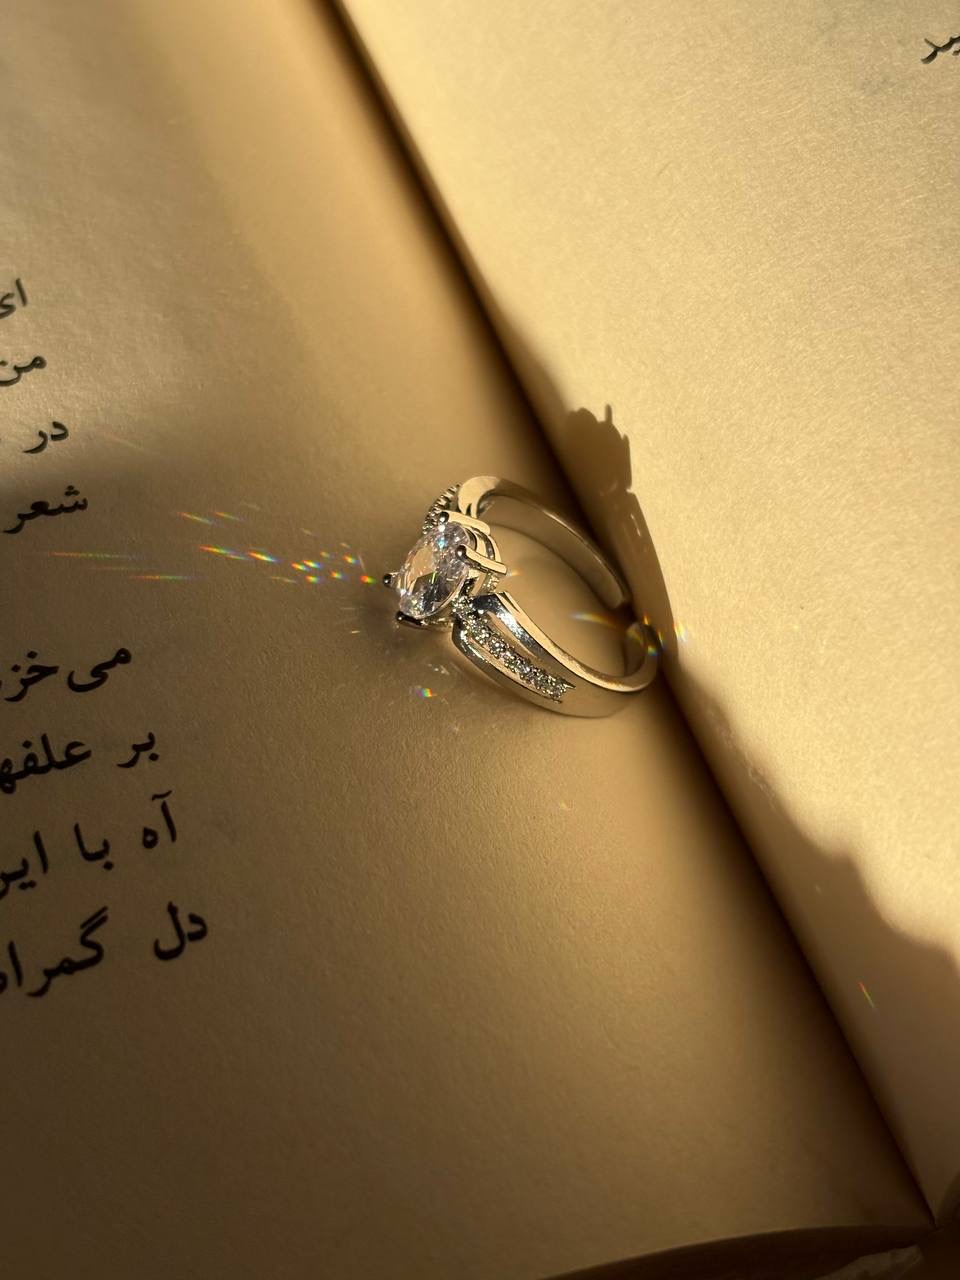 ای
من
در
شعر
می‌خز
بر علفه
آه با این
دل گمراه
ید